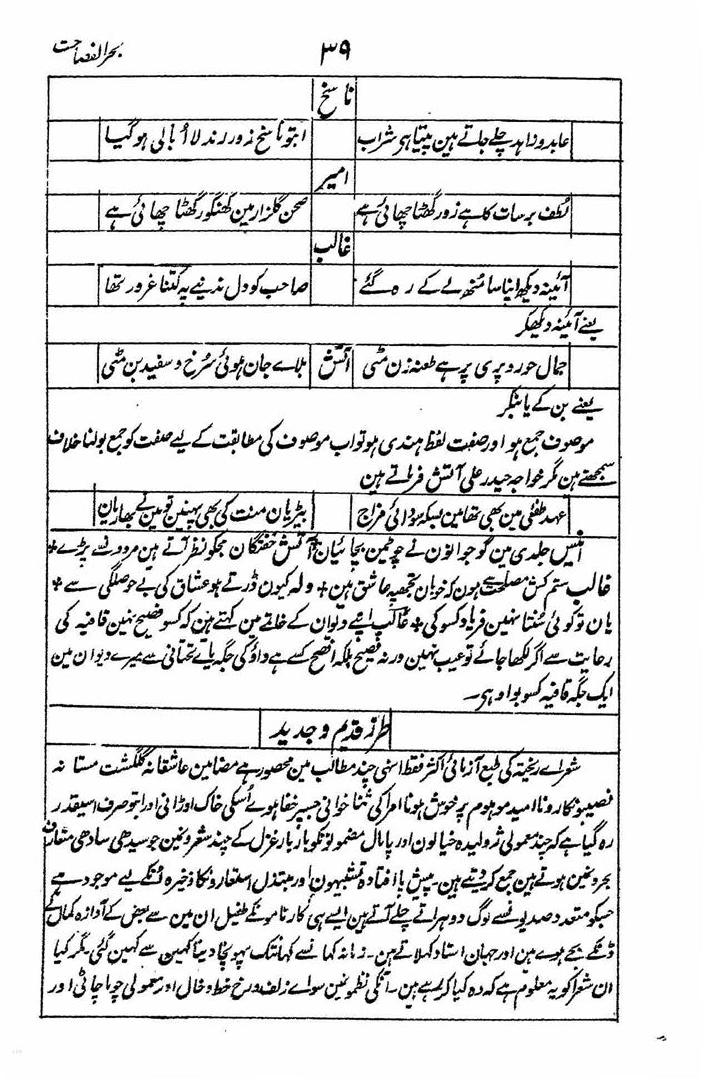 بحر الفصاحت
۳۹
ناسخ
عابد و زاہد چلے جاتے ہین پیتا ہی شراب
ابتو ناسخ زور رند لا اُبالی ہو گیا
امیر
لُطف برسات کا ہے زور گھٹا چھائی ہے
صحن گلزار مین گھنگور گھٹا چھائی ہے
غالب
آئینہ دیکھ اپنا سا مُنھ لے کے رہ گئے
صاحب کو دل ندینے پہ کتنا غرور تھا
یعنے آئینہ دیکھکر
جمال حور و پری پر ہے طعنہ زن مٹی
آتش
بلاے جان ہوئی سُرخ و سفید بن مٹی
یعنے بن کے یا بنکر
موصوف جمع ہو اور صفت لفظ ہندی ہو تو اب موصوف کی مطابقت کے لیے صفت کو جمع بولنا خلاف
سمجھتے ہین مگر خواجہ حیدر علی آتش فرماتے ہین
عہد طفلی مین بھی تھا مین بسکہ سودائی مزاج
بیڑیان منت کی بھی پہنین تو مین نے بھاریان
انیس جلدی مین گو جوانون نے چوٹین بچائیان + آتش خفتگان مجکو نظر آتے ہین مردونسے پڑے +
غالب ستم کش مصلحت سے ہون کہ خوبان تجھپہ عاشق ہین + ولہ کیون ڈرتے ہو عشاق کی بے حوصلگی سے +
یان تو کوئی سُنتا نہین فریاد کسو کی + غالب اپنے دیوان کے خاتمے مین کہتے ہین کہ کسو فصیح نہین قافیہ کی
رعایت سے اگر لکھا جائے تو عیب نہین ورنہ فصیح بلکہ افصح کسے ہے واؤ کی جگہ یاے تحتانی سے میرے دیوان مین
ایک جگہ قافیہ کسو بواو ہی۔
طرز قدیم و جدید
شعراے ریختہ کی طبع آزمائی اکثر فقط انہی چند مطالب مین محصور ہے مضامین عاشقانہ گلگشت مستانہ
نصیبونکا رونا امید موہوم پر خوش ہونا امرا کی ثنا خوانی جسپر خفا ہوے اُسکی خاک اوڑانی اور ابتو صرف اسیقدر
رہ گیا ہے کہ چند معمولی ژولیدہ خیالون اور پامال مضمونونکو بار بار غزل کے چند شعرونمین جو سیدھی سادھی متعارف
بحرونمین ہوتے ہین جمع کر دیتے ہین۔ پیش پا افتادہ تشبیہون اور مبتذل استعارونکا ذخیرہ اُنکے لیے موجود ہے
جسکو متعدد صدیونسے لوگ دوہراتے چلے آتے ہین ایسے ہی کارنامونکے طفیل ان مین سے بعض کے آوازہ کمال کے
ڈنکے بجے ہوے ہین اور جہان استاد کہلاتے ہین۔ زمانہ کہانسے کہانتک پہونچا دنیا کہین سے کہین گئی مگر کیا
ان شعرا کو یہ معلوم ہے کہ وہ کیا کر رہے ہین۔ اُنکی نظمونمین سواے زلف و رخ خط و خال اور معمولی چوما چاٹی اور